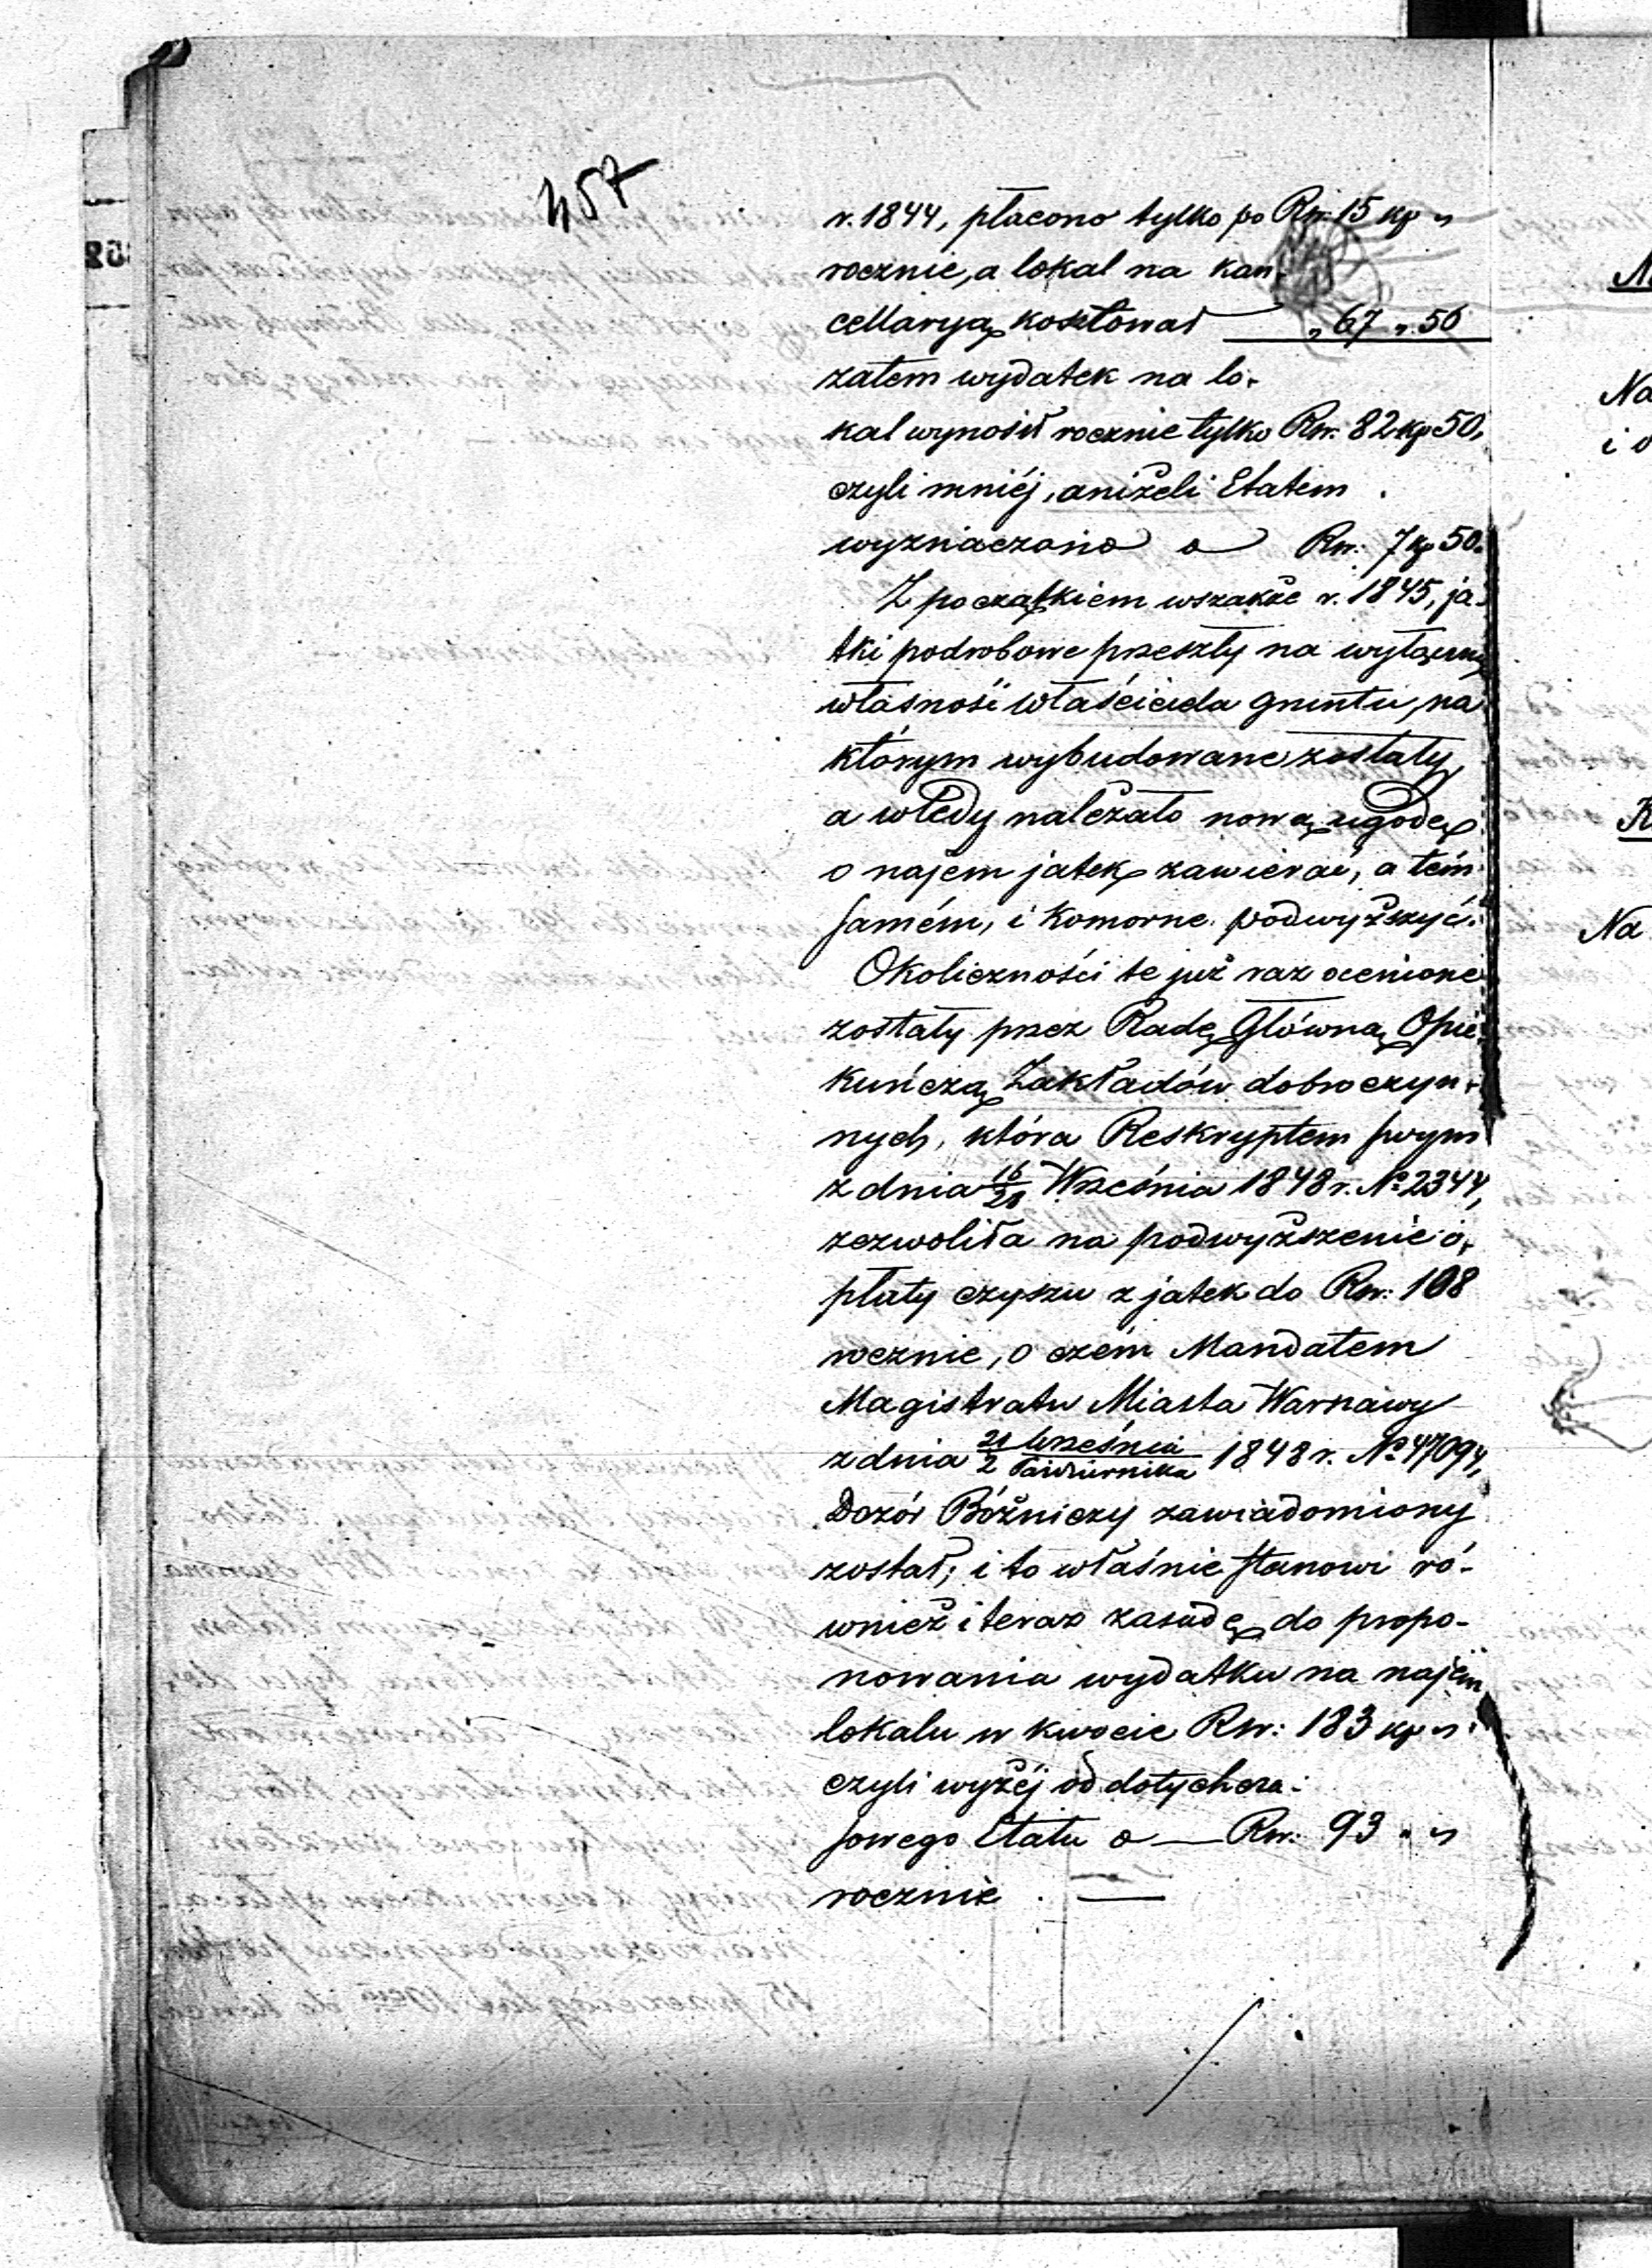 457
r. 1844, płacono tylko po Rsr. 15 kp „
rocznie, a lokal na kan-
cellaryą kosztował „ 67 „ 50
zatem wydatek na lo-
kal wynosił rocznie tylko Rsr. 82 kp 50.
czyli mniéj, aniżeli Etatem
wyznaczono o Rsr: 7 kp 50.
Z początkiem wszakże r. 1845, ja-
tki podrobowe przeszły na wyłączną
własność właściciela gruntu, na
którym wybudowane zostały,
a wtedy należało nową ugodę
o najem jatek zawierać, a tém
samém, i Komorne podwyższyć.
Okoliczności te już raz ocenione
zostały przez Radę Główną Opie-
kuńczą Zakładów dobroczyn-
nych, która Reskryptem swym
z dnia 16/28 Września 1848 r. № 2344,
zezwoliła na podwyższenie o-
płaty czynszu z jatek do Rsr: 108
rocznie, o czém Mandatem
Magistratu Miasta Warszawy
z dnia 21 Września/2 Października 1848 r. № 47094,
Dozór Bóżniczy zawiadomiony
został; i to właśnie stanowi ró-
wnież i teraz zasadę do propo-
nowania wydatku na najem
lokalu w kwocie Rsr: 183 kp „
czyli wyżéj od dotychcza-
sowego Etatu o — Rsr: 93 „ „
rocznie. —